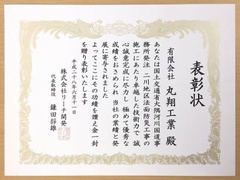 表彰状
有限会社 丸翔工業 殿
あなたは国土交通省大隅河川国道事
務所発注 二川地区法面防災工事の
施工にあたり卓越した技術力で誠
心誠意完成に尽力し 極めて優秀な
成績をおさめられ 当社の業績と発
展に寄与されました
よってここにその功績を讃え金一封
を贈り表彰いたします
平成二十八年六月十一日
株式会社リーチ開発
代表取締役 鎌田将雄